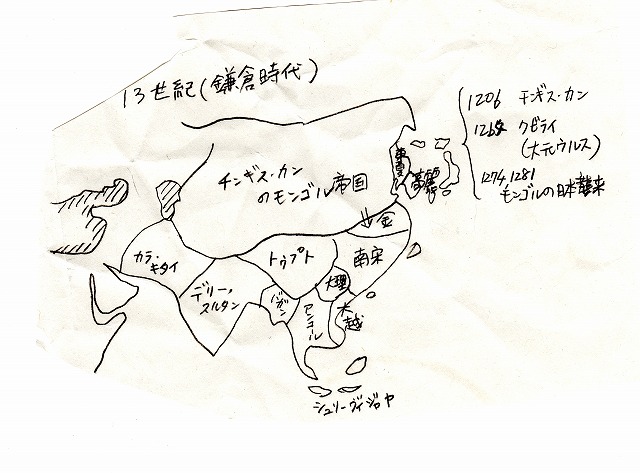 13世紀(鎌倉時代)
1206 チンギス・カン
クビライ
(大元ウルス)
1274 1281
モンゴルの日本襲来
チンギス・カン
のモンゴル帝国
高麗
金
南宋
カラ・
キタイ
トゥプト
デリー、
スルタン
パガン
大理
アンコール
大越
シュリーヴィジャヤ